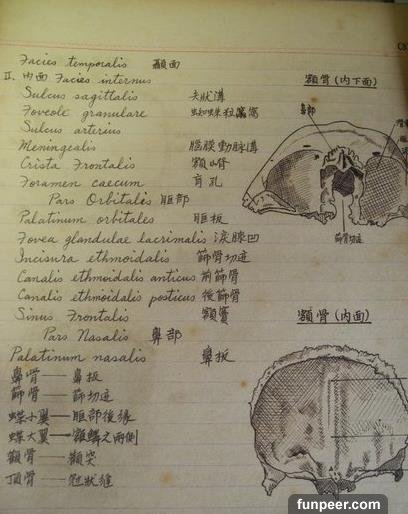 Facies temporalis 顳面
II. 内面 Facies internus
Sulcus sagittalis 矢狀溝
Foveole granulare 蜘蛛粒窩
Sulcus arterius
Meningealis 腦膜動脈溝
Crista Frontalis 額嵴
Foramen caecum 盲孔
Pars Orbitalis 眶部
Palatinum orbitales 眶板
Fovea glandulae lacrimalis 淚腺凹
Incisura ethmoidalis 篩骨切迹
Canalis ethmoidalis anticus 前篩骨
Canalis ethmoidalis posticus 後篩骨
Sinus Frontalis 額竇
Pars Nasalis 鼻部
Palatinum nasalis 鼻板
鼻骨——鼻板
篩骨——篩切迹
蝶小翼——眶部後緣
蝶大翼——額鱗之兩側
顴骨——顴突
頂骨——冠狀縫
額骨(内下面)
鼻部
篩骨切迹
額骨(内面)
funpeer.com